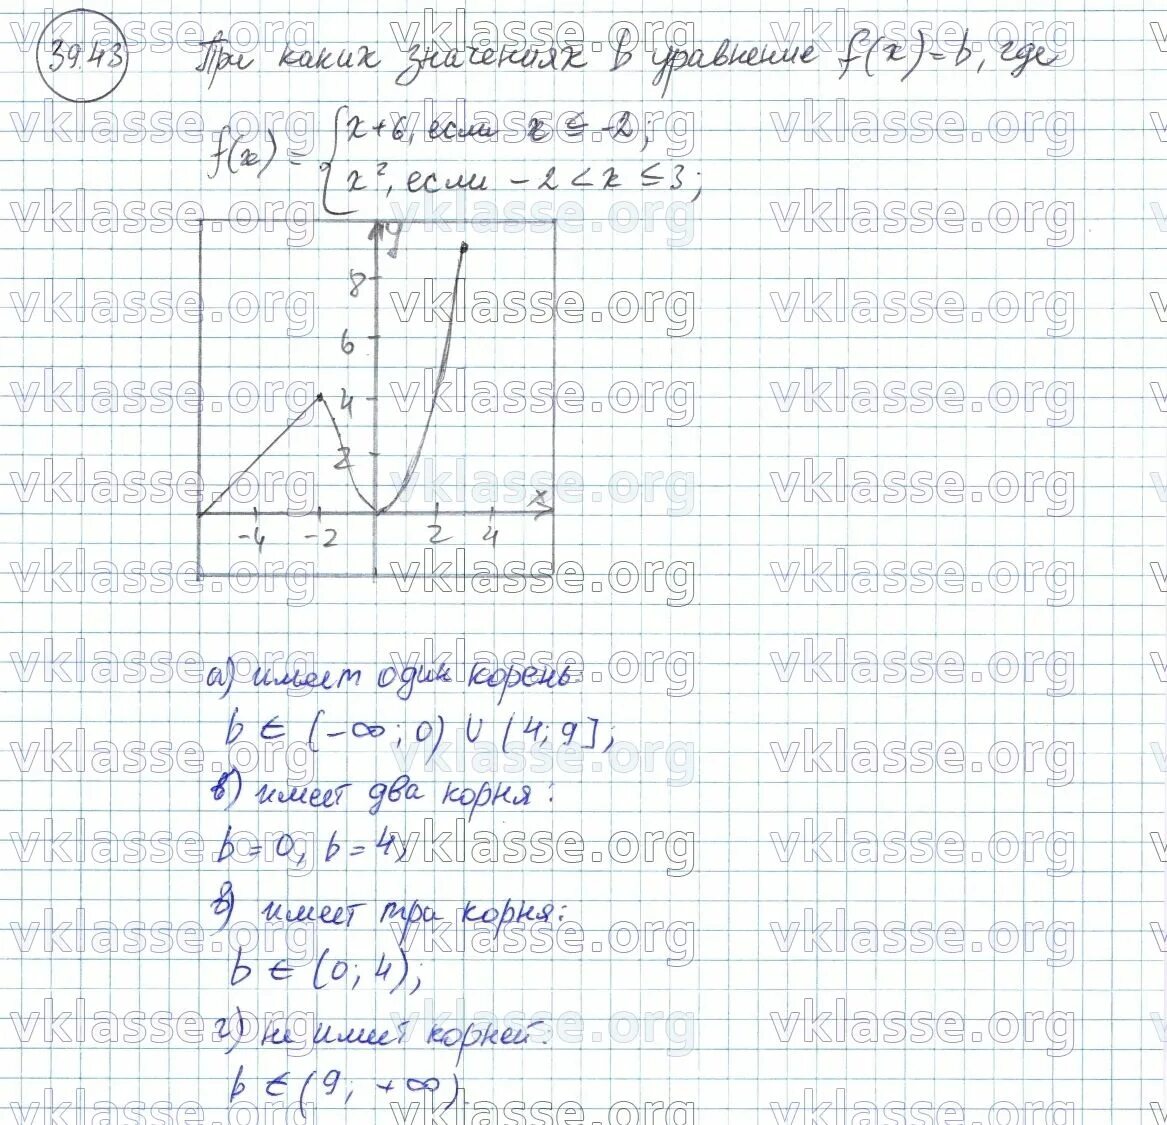 39.43 При каких значениях b уравнение f(x)=b, где
f(x) = { x+6, если x ≤ -2;
x², если -2 < x ≤ 3;
y
8
6
4
2
x
-4 -2 2 4
а) имеет один корень:
b ∈ (-∞; 0) ∪ (4; 9];
б) имеет два корня:
b = 0, b = 4;
в) имеет три корня:
b ∈ (0; 4);
г) не имеет корней:
b ∈ (9; +∞).
vklasse.org